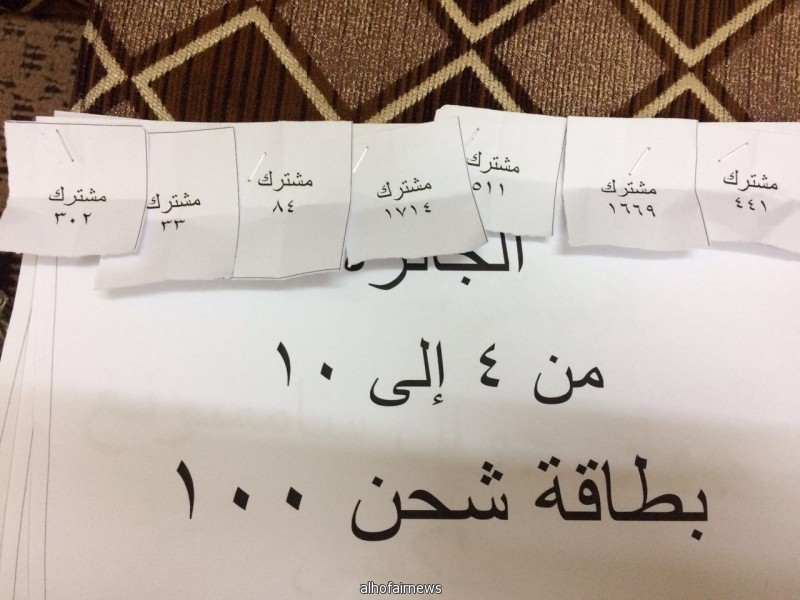 مشترك
٤٤١
مشترك
١٦٦٩
مشترك
٥١١
مشترك
١٧١٤
مشترك
٨٤
مشترك
٣٣
مشترك
٣٠٢
الجائزة
من ٤ إلى ١٠
بطاقة شحن ١٠٠
alhofairnews